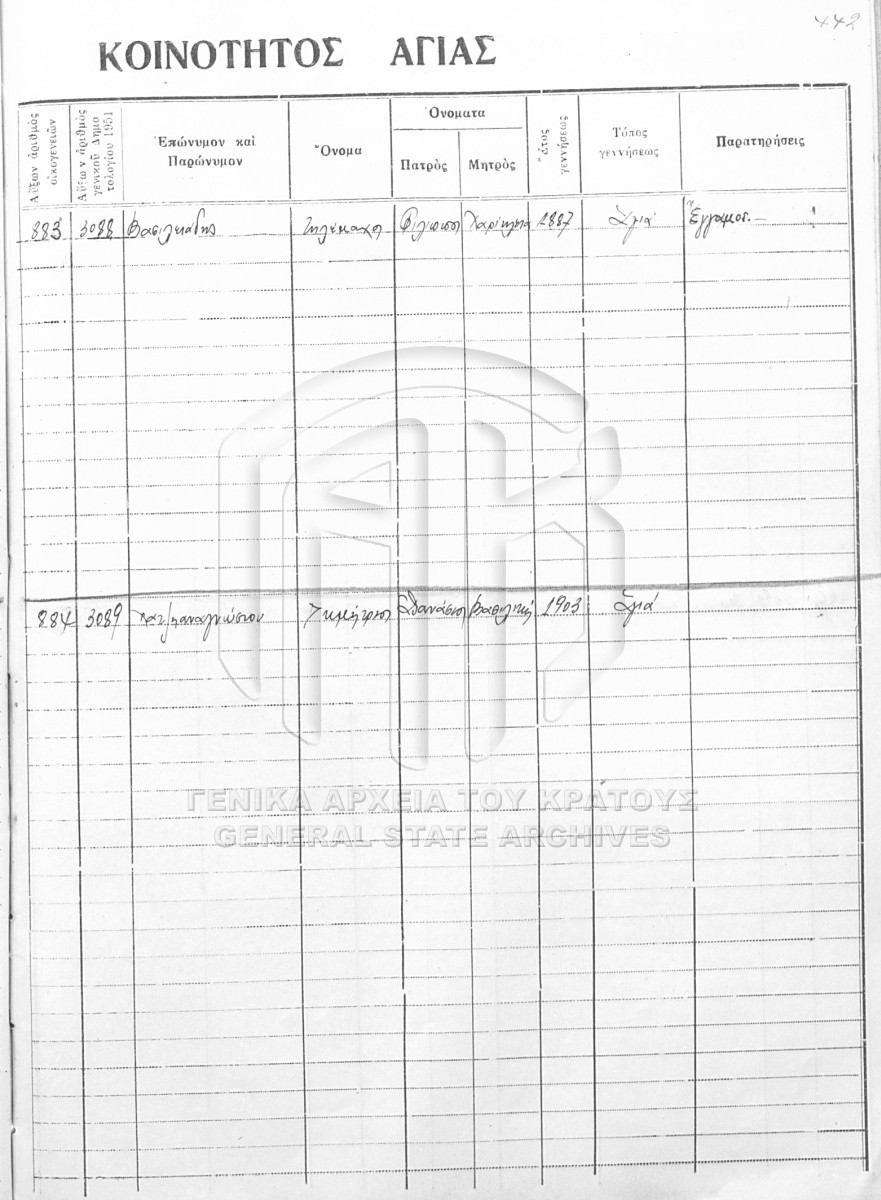 442
ΚΟΙΝΟΤΗΤΟΣ ΑΓΙΑΣ
Αὔξων ἀριθμὸς οἰκογενειῶν
Αὔξων ἀριθμὸς γενικοῦ Δημοτολογίου 1951
Ἐπώνυμον καὶ Παρώνυμον
Ὄνομα
Ὀνοματα
Πατρὸς
Μητρὸς
Ἔτος γεννήσεως
Τόπος γεννήσεως
Παρατηρήσεις
883 3088 Βασιλειάδης Τηλέμαχος Φίλιππος Χαρίκλεια 1887 Ἁγιά Ἔγγαμος.—
884 3089 Χατζηπαναγιώτου Δημήτριος Ἀθανάσιος Βασιλική 1903 Ἁγιά
ΓΕΝΙΚΑ ΑΡΧΕΙΑ ΤΟΥ ΚΡΑΤΟΥΣ
GENERAL STATE ARCHIVES